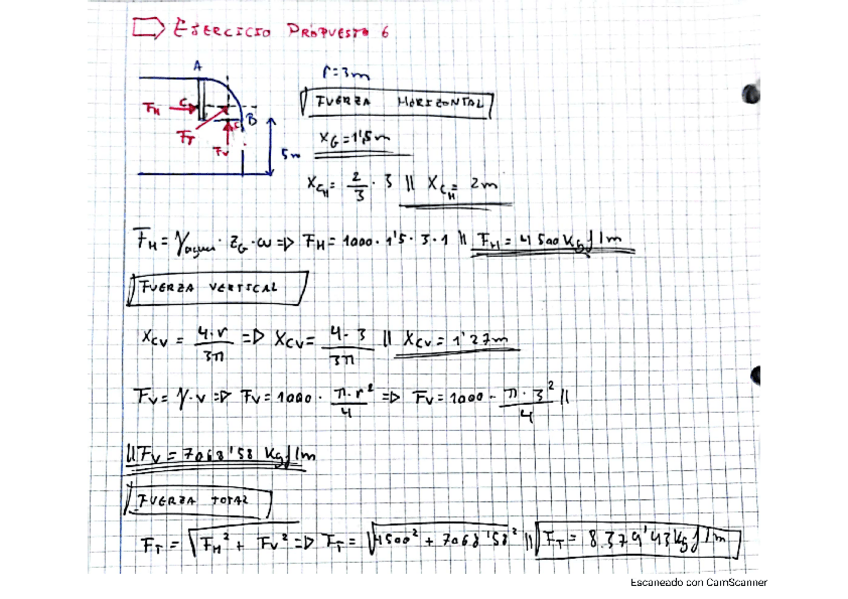 EJERCICIO PROPUESTO 6
A
r=3m
FUERZA HORIZONTAL
FH
C
B
FT
Fv
C
5m
XG=1'5m
XCH= 2/3 · 3 || XCH= 2m
FH = γagua · ZG · ω => FH= 1000 · 1'5 · 3 · 1 || FH= 4500 Kgf/m
FUERZA VERTICAL
XCV = 4·r/3π => XCV= 4·3/3π || XCV = 1'27m
FV= γ·v => FV= 1000 · π·r²/4 => FV= 1000 · π·3²/4 ||
|| FV = 7068'58 Kgf/m
FUERZA TOTAL
FT = √FH² + FV² => FT= √4500² + 7068'58² || FT= 8.379'43 Kgf/m
Escaneado con CamScanner